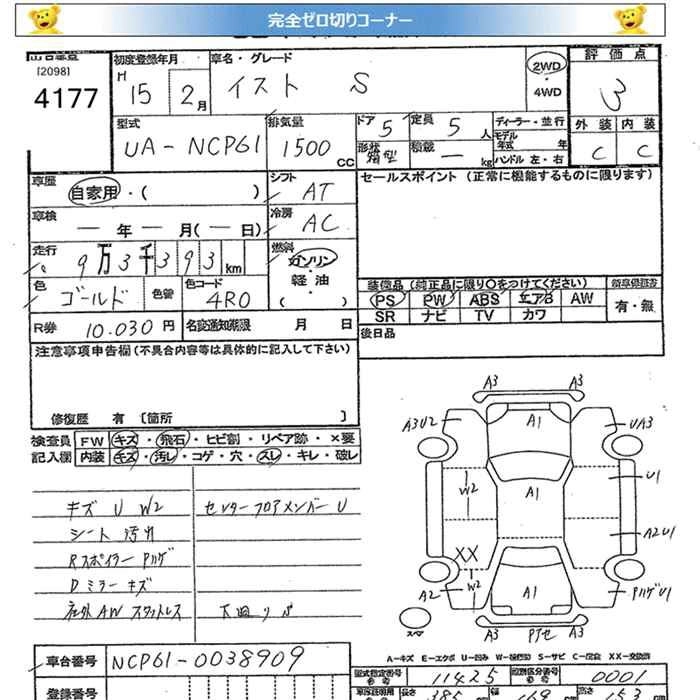 完全ゼロ切りコーナー
出品番号
[2098]
4177
初度登録年月
H 15 2月
車名・グレード
イスト S
2WD
・
4WD
評価点
3
外装 内装
C C
型式
UA-NCP61
排気量
1500 CC
ドア 5
定員 5 人
形状 箱型
積載 — kg
ディーラー・並行
モデル年式 年
ハンドル 左・右
車歴 自家用・( )
シフト AT
セールスポイント(正常に機能するものに限ります)
車検 — 年 — 月(— 日)
冷房 AC
走行 9万3千393km
燃料 ガソリン・軽油
( )
色 ゴールド 色替
色コード 4R0
装備品(純正品に限り○をつけてください)
PS PW ABS エアB AW
SR ナビ TV カワ
新車保証書
有・無
R券 10.030円
名変通知期限 月 日
後日品
注意事項申告欄(不具合内容等は具体的に記入して下さい)
修復歴 有〔箇所 〕
検査員 FW キズ・飛石・ヒビ割・リペア跡・×要
記入欄 内装 キズ・汚レ・コゲ・穴・スレ・キレ・破レ
キズ U W2
センターフロアメンバー U
シート 汚れ
Rスポイラー Pハゲ
Dミラーキズ
社外AW スタットレス
A3 A3
A3U2 A1 UA3
W2 A1 U1
XX A2U1
A2 W2 A1 PハゲU1
スペア A3 Pフセ A3
A-キズ E-エクボ U-凹み W-補修跡 S-サビ C-腐食 XX-交換済
車台番号 NCP61-0038909
型式指定番号 11425
類別区分番号 0001
登録番号
長さ 385
幅 169
高さ 153